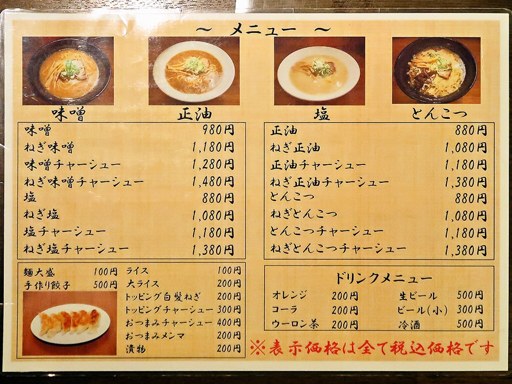 ～ メニュー ～
味噌 正油 塩 とんこつ
味噌 980円
ねぎ味噌 1,180円
味噌チャーシュー 1,280円
ねぎ味噌チャーシュー 1,480円
塩 880円
ねぎ塩 1,080円
塩チャーシュー 1,180円
ねぎ塩チャーシュー 1,380円
正油 880円
ねぎ正油 1,080円
正油チャーシュー 1,180円
ねぎ正油チャーシュー 1,380円
とんこつ 880円
ねぎとんこつ 1,080円
とんこつチャーシュー 1,180円
ねぎとんこつチャーシュー 1,380円
麺大盛 100円
手作り餃子 500円
ライス 100円
大ライス 200円
トッピング白髪ねぎ 200円
トッピングチャーシュー 300円
おつまみチャーシュー 400円
おつまみメンマ 200円
漬物 200円
ドリンクメニュー
オレンジ 200円 生ビール 500円
コーラ 200円 ビール(小) 300円
ウーロン茶 200円 冷酒 500円
※表示価格は全て税込価格です